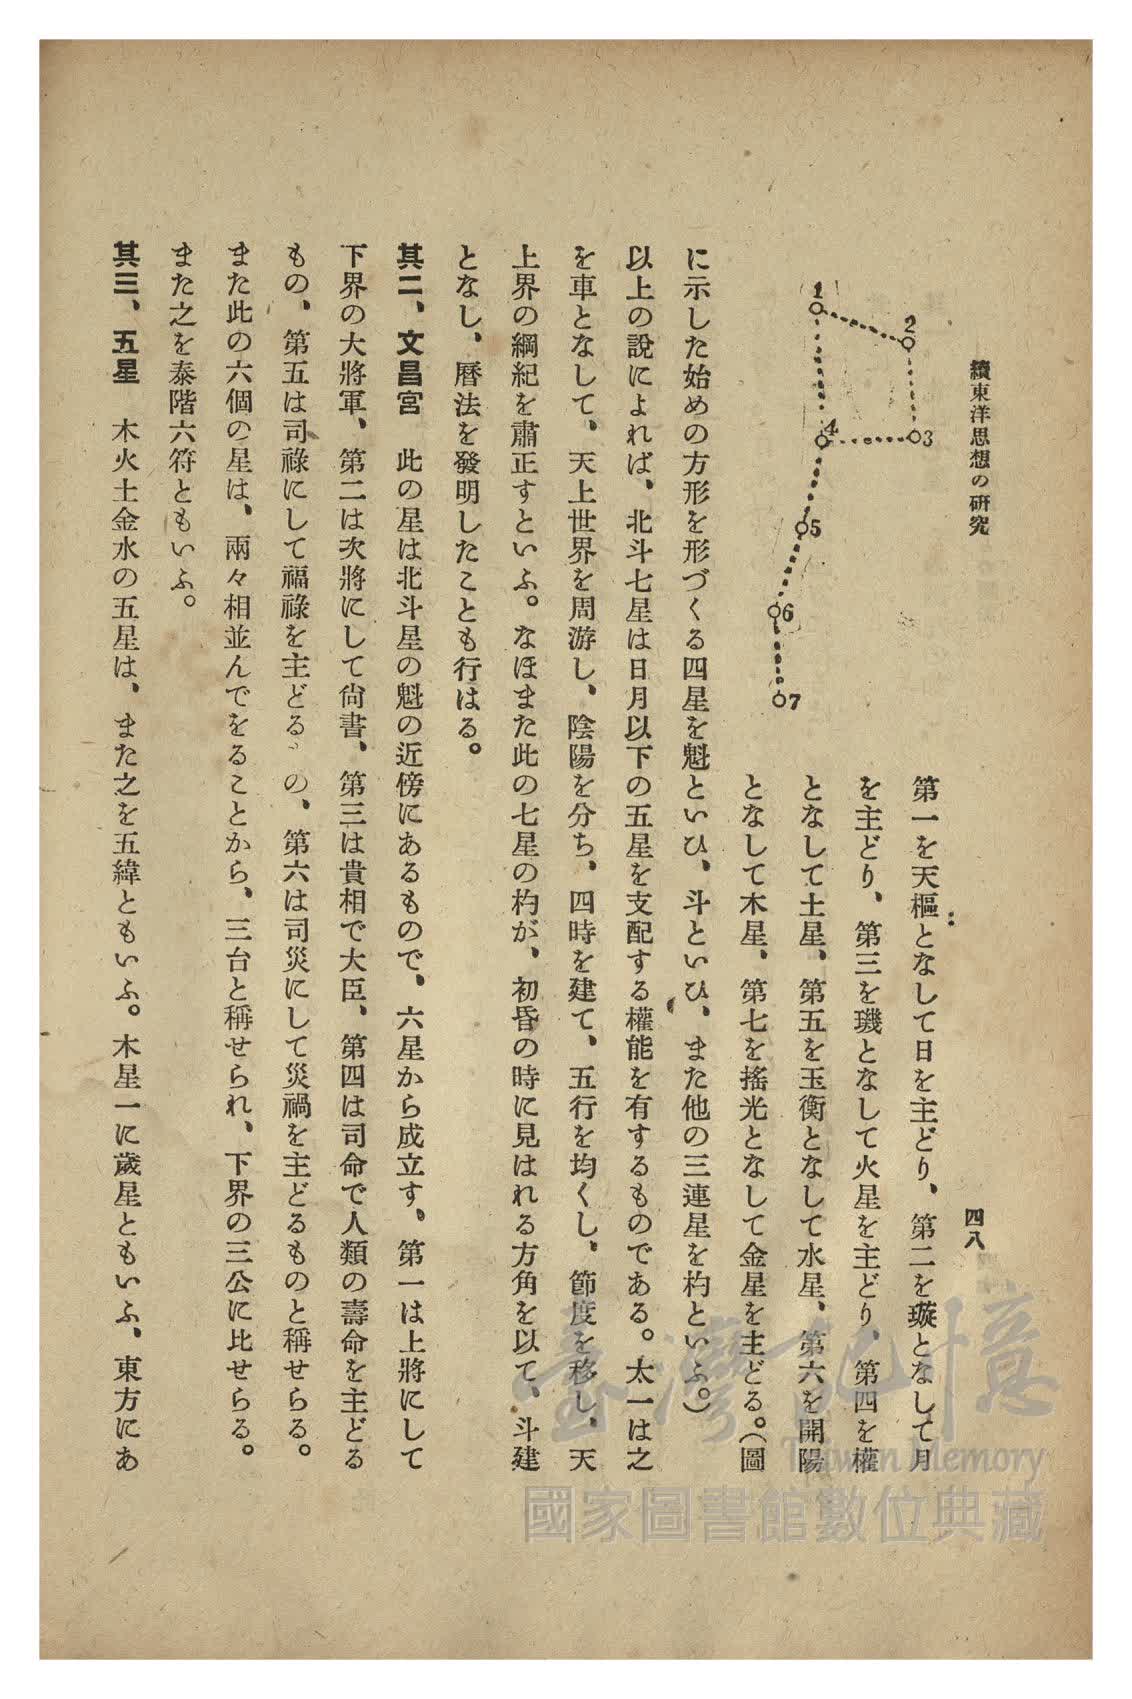 續東洋思想の研究
四八
1
2
3
4
5
6
7
第一を天樞となして日を主どり、第二を璇となして月
を主どり、第三を璣となして火星を主どり、第四を權
となして土星、第五を玉衡となして水星、第六を開陽
となして木星、第七を搖光となして金星を主どる。(圖
に示した始めの方形を形づくる四星を魁といひ、斗といひ、また他の三連星を杓といふ。)
以上の說によれば、北斗七星は日月以下の五星を支配する權能を有するものである。太一は之
を車となして、天上世界を周游し、陰陽を分ち、四時を建て、五行を均くし、節度を移し、天
上界の綱紀を肅正すといふ。なほまた此の七星の杓が、初昏の時に見はれる方角を以て、斗建
となし、曆法を發明したことも行はる。
其二、文昌宮　此の星は北斗星の魁の近傍にあるもので、六星から成立す、第一は上將にして
下界の大將軍、第二は次將にして尙書、第三は貴相で大臣、第四は司命で人類の壽命を主どる
もの、第五は司祿にして福祿を主どるの、第六は司災にして災禍を主どるものと稱せらる。
また此の六個の星は、兩々相並んでをることから、三台と稱せられ、下界の三公に比せらる。
また之を泰階六符ともいふ。
其三、五星　木火土金水の五星は、また之を五緯ともいふ。木星一に歲星ともいふ、東方にあ
臺灣記憶
Taiwan Memory
國家圖書館數位典藏